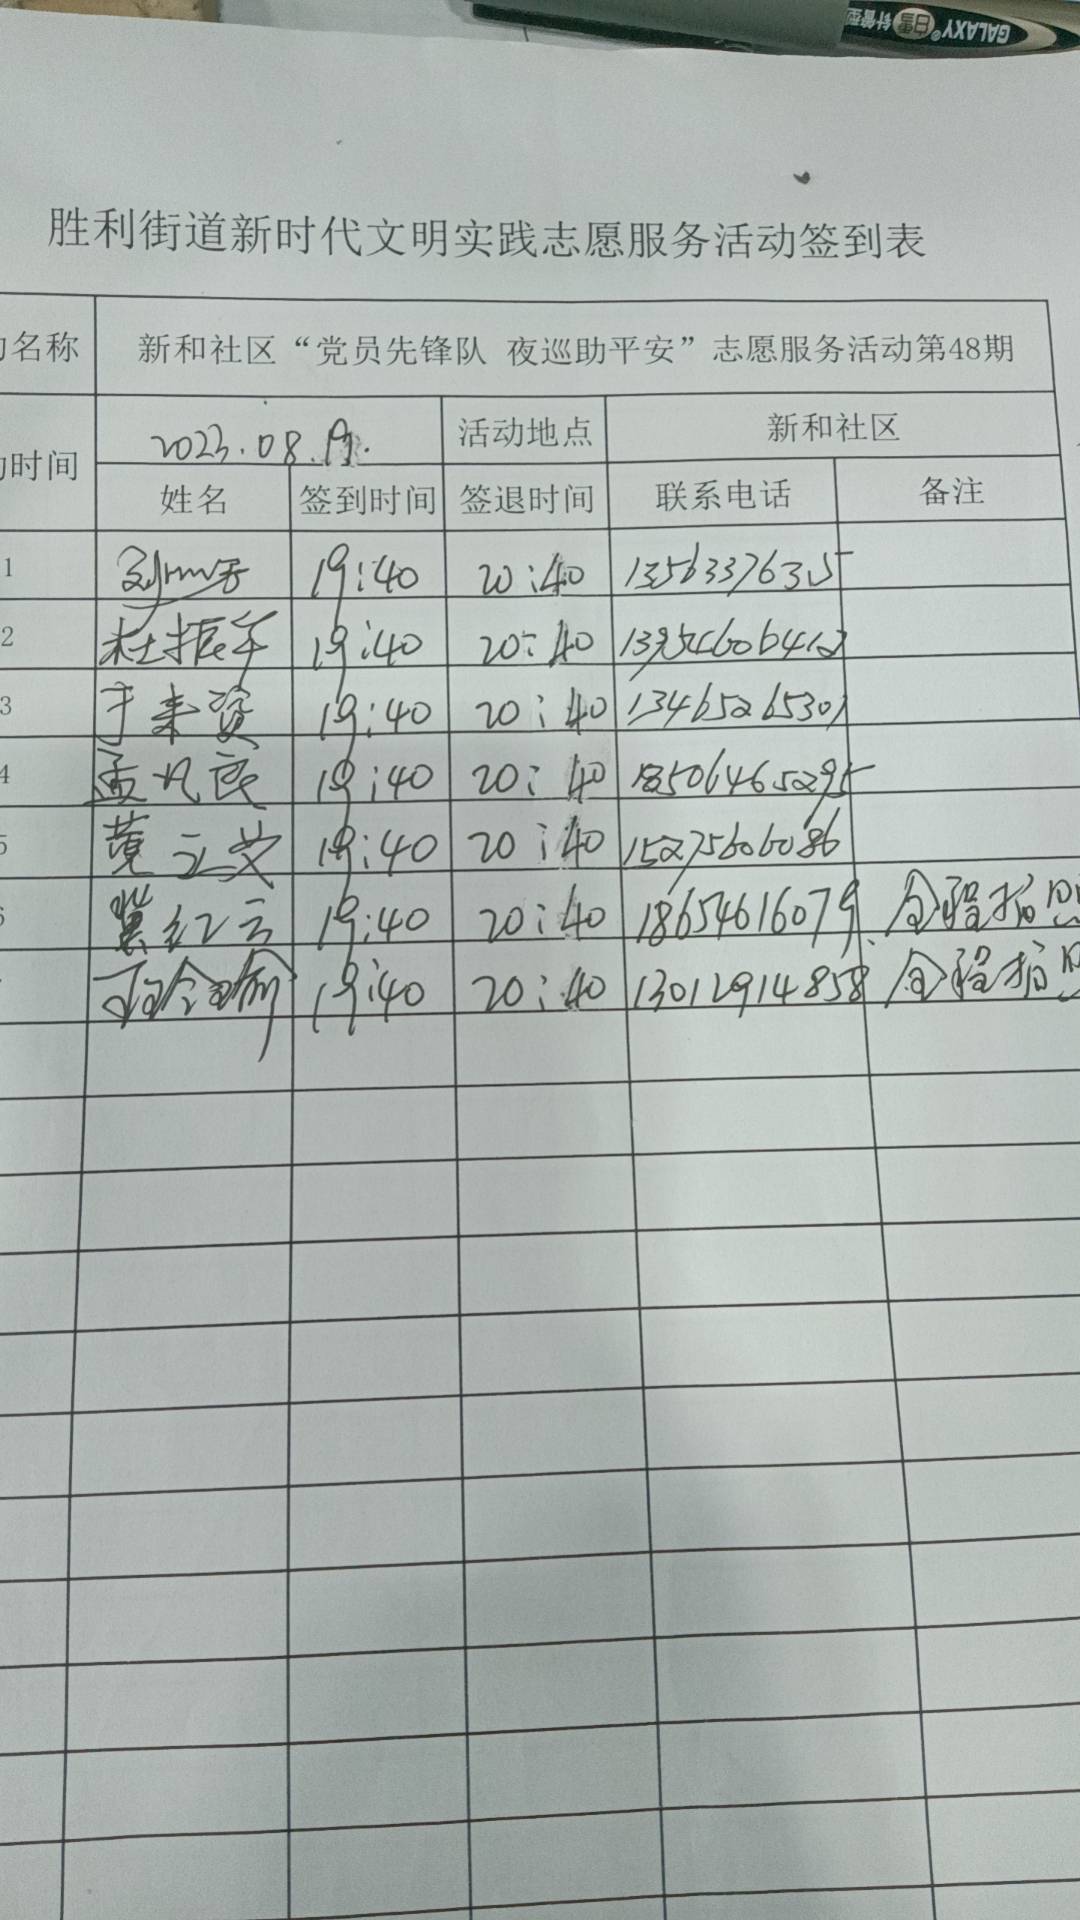 GALAXY® 日星 针管型
胜利街道新时代文明实践志愿服务活动签到表
名称 新和社区“党员先锋队 夜巡助平安”志愿服务活动第48期
时间 2023.08. 活动地点 新和社区
姓名 签到时间 签退时间 联系电话 备注
1 19:40 20:40
2 杜振 19:40 20:40
3 于来资 19:40 20:40 13465265301
4 孟凡民 19:40 20:40
5 黄立安 19:40 20:40 15275606086
6 冀红云 19:40 20:40 18654616079 全程拍照
19:40 20:40 13012914858 全程拍照